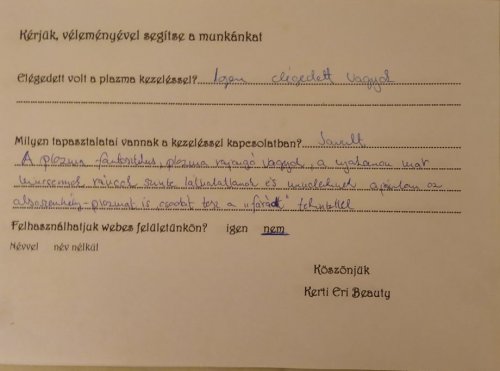 Kérjük, véleményével segítse a munkánkat
Elégedett volt a plazma kezeléssel? Igen elégedett vagyok
Milyen tapasztalatai vannak a kezeléssel kapcsolatban? Javult
A plazma fantasztikus, plazma rajongó vagyok, a nyakamon már
nincsenek ráncok szinte láthatatlanok és mindenkinek ajánlom az
alsószemhély-plazmát is csodát tesz a „fáradt" tekintettel
Felhasználhatjuk webes felületünkön? igen nem
Névvel név nélkül
Köszönjük
Kerti Eri Beauty